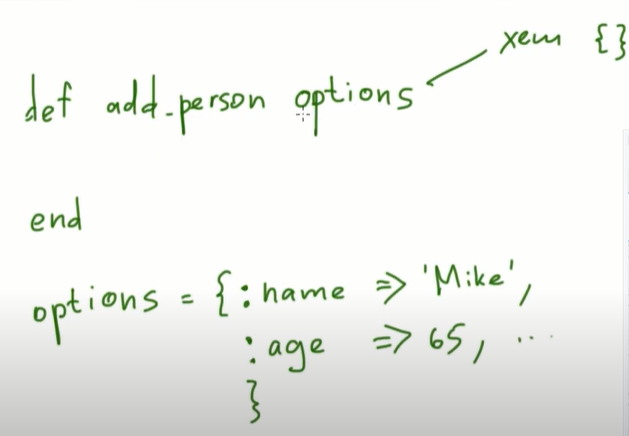 хеш {}
def add_person options
end
options = {:name => 'Mike',
:age => 65, ...
}